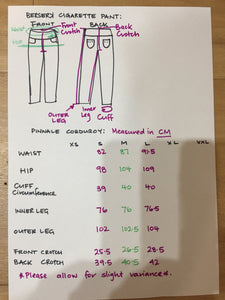 BERSERK CIGARETTE PANT:
FRONT BACK
WAIST Front Crotch Back Crotch
HIP
OUTER LEG Inner Leg Cuff
PINWALE CORDUROY: Measured in CM
XS S M L XL XXL
WAIST 82 87 91.5
HIP 98 104 109
CUFF Circumference 39 40 40
INNER LEG 76 76 76.5
OUTER LEG 102 102.5 104
FRONT CROTCH 25.5 26.5 28.5
BACK CROTCH 39.5 40.5 42
*Please allow for slight variance*.